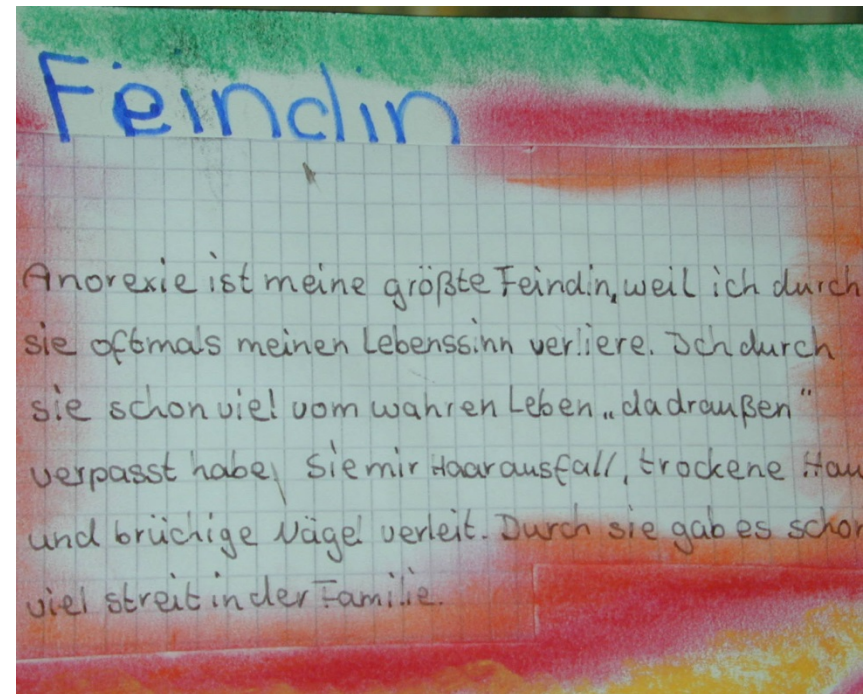 Feindin
Anorexie ist meine größte Feindin, weil ich durch
sie oftmals meinen Lebenssinn verliere. Ich durch
sie schon viel vom wahren Leben „dadraußen“
verpasst habe, Sie mir Haarausfall, trockene Hau
und brüchige Nägel verleit. Durch sie gab es schon
viel streit in der Familie.